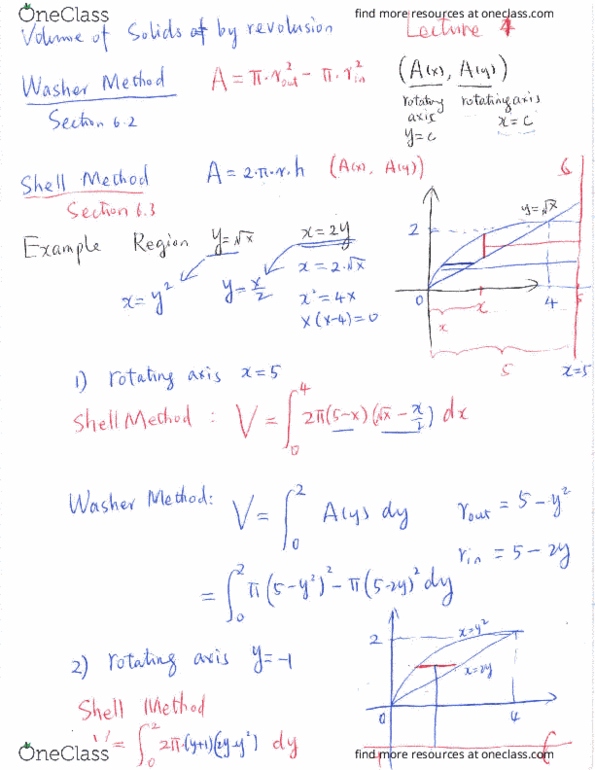 OneClass find more resources at oneclass.com
Volume of Solids of by revolusion Lecture 4
Washer Method A = π·r²out - π·r²in (A(x), A(y))
Section 6.2 rotating axis y=c rotating axis x=c
Shell Method A = 2·π·r·h (A(x), A(y)) 6
Section 6.3
Example Region y=√x x=2y
x=y² y=x/2 x=2·√x
x²=4x
x(x-4)=0
y=√x
2
0 x 4
x
5 x=5
1) rotating axis x=5
Shell Method : V = ∫₀⁴ 2π(5-x)(√x - x/2) dx
Washer Method: V = ∫₀² A(y) dy rout = 5-y²
rin = 5-2y
= ∫₀² π(5-y²)² - π(5-2y)² dy
2) rotating axis y=-1
2 x=y²
x=2y
0 4
Shell Method
V = ∫₀² 2π·(y+1)(2y-y²) dy
OneClass find more resources at oneclass.com